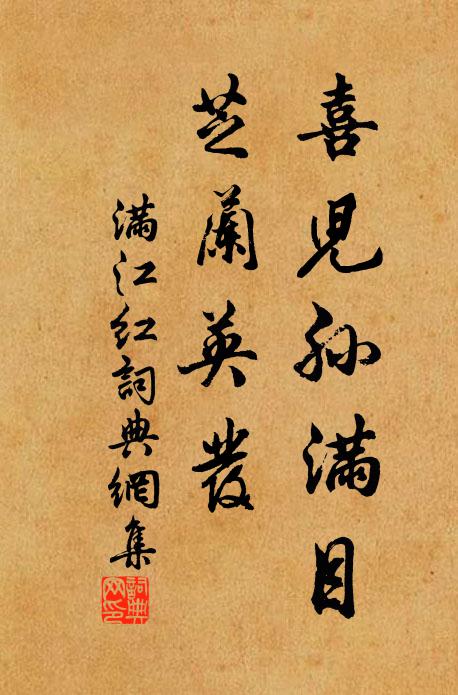 喜兒孫滿目
芝蘭英發
滿江红詞典網集
詞典网印